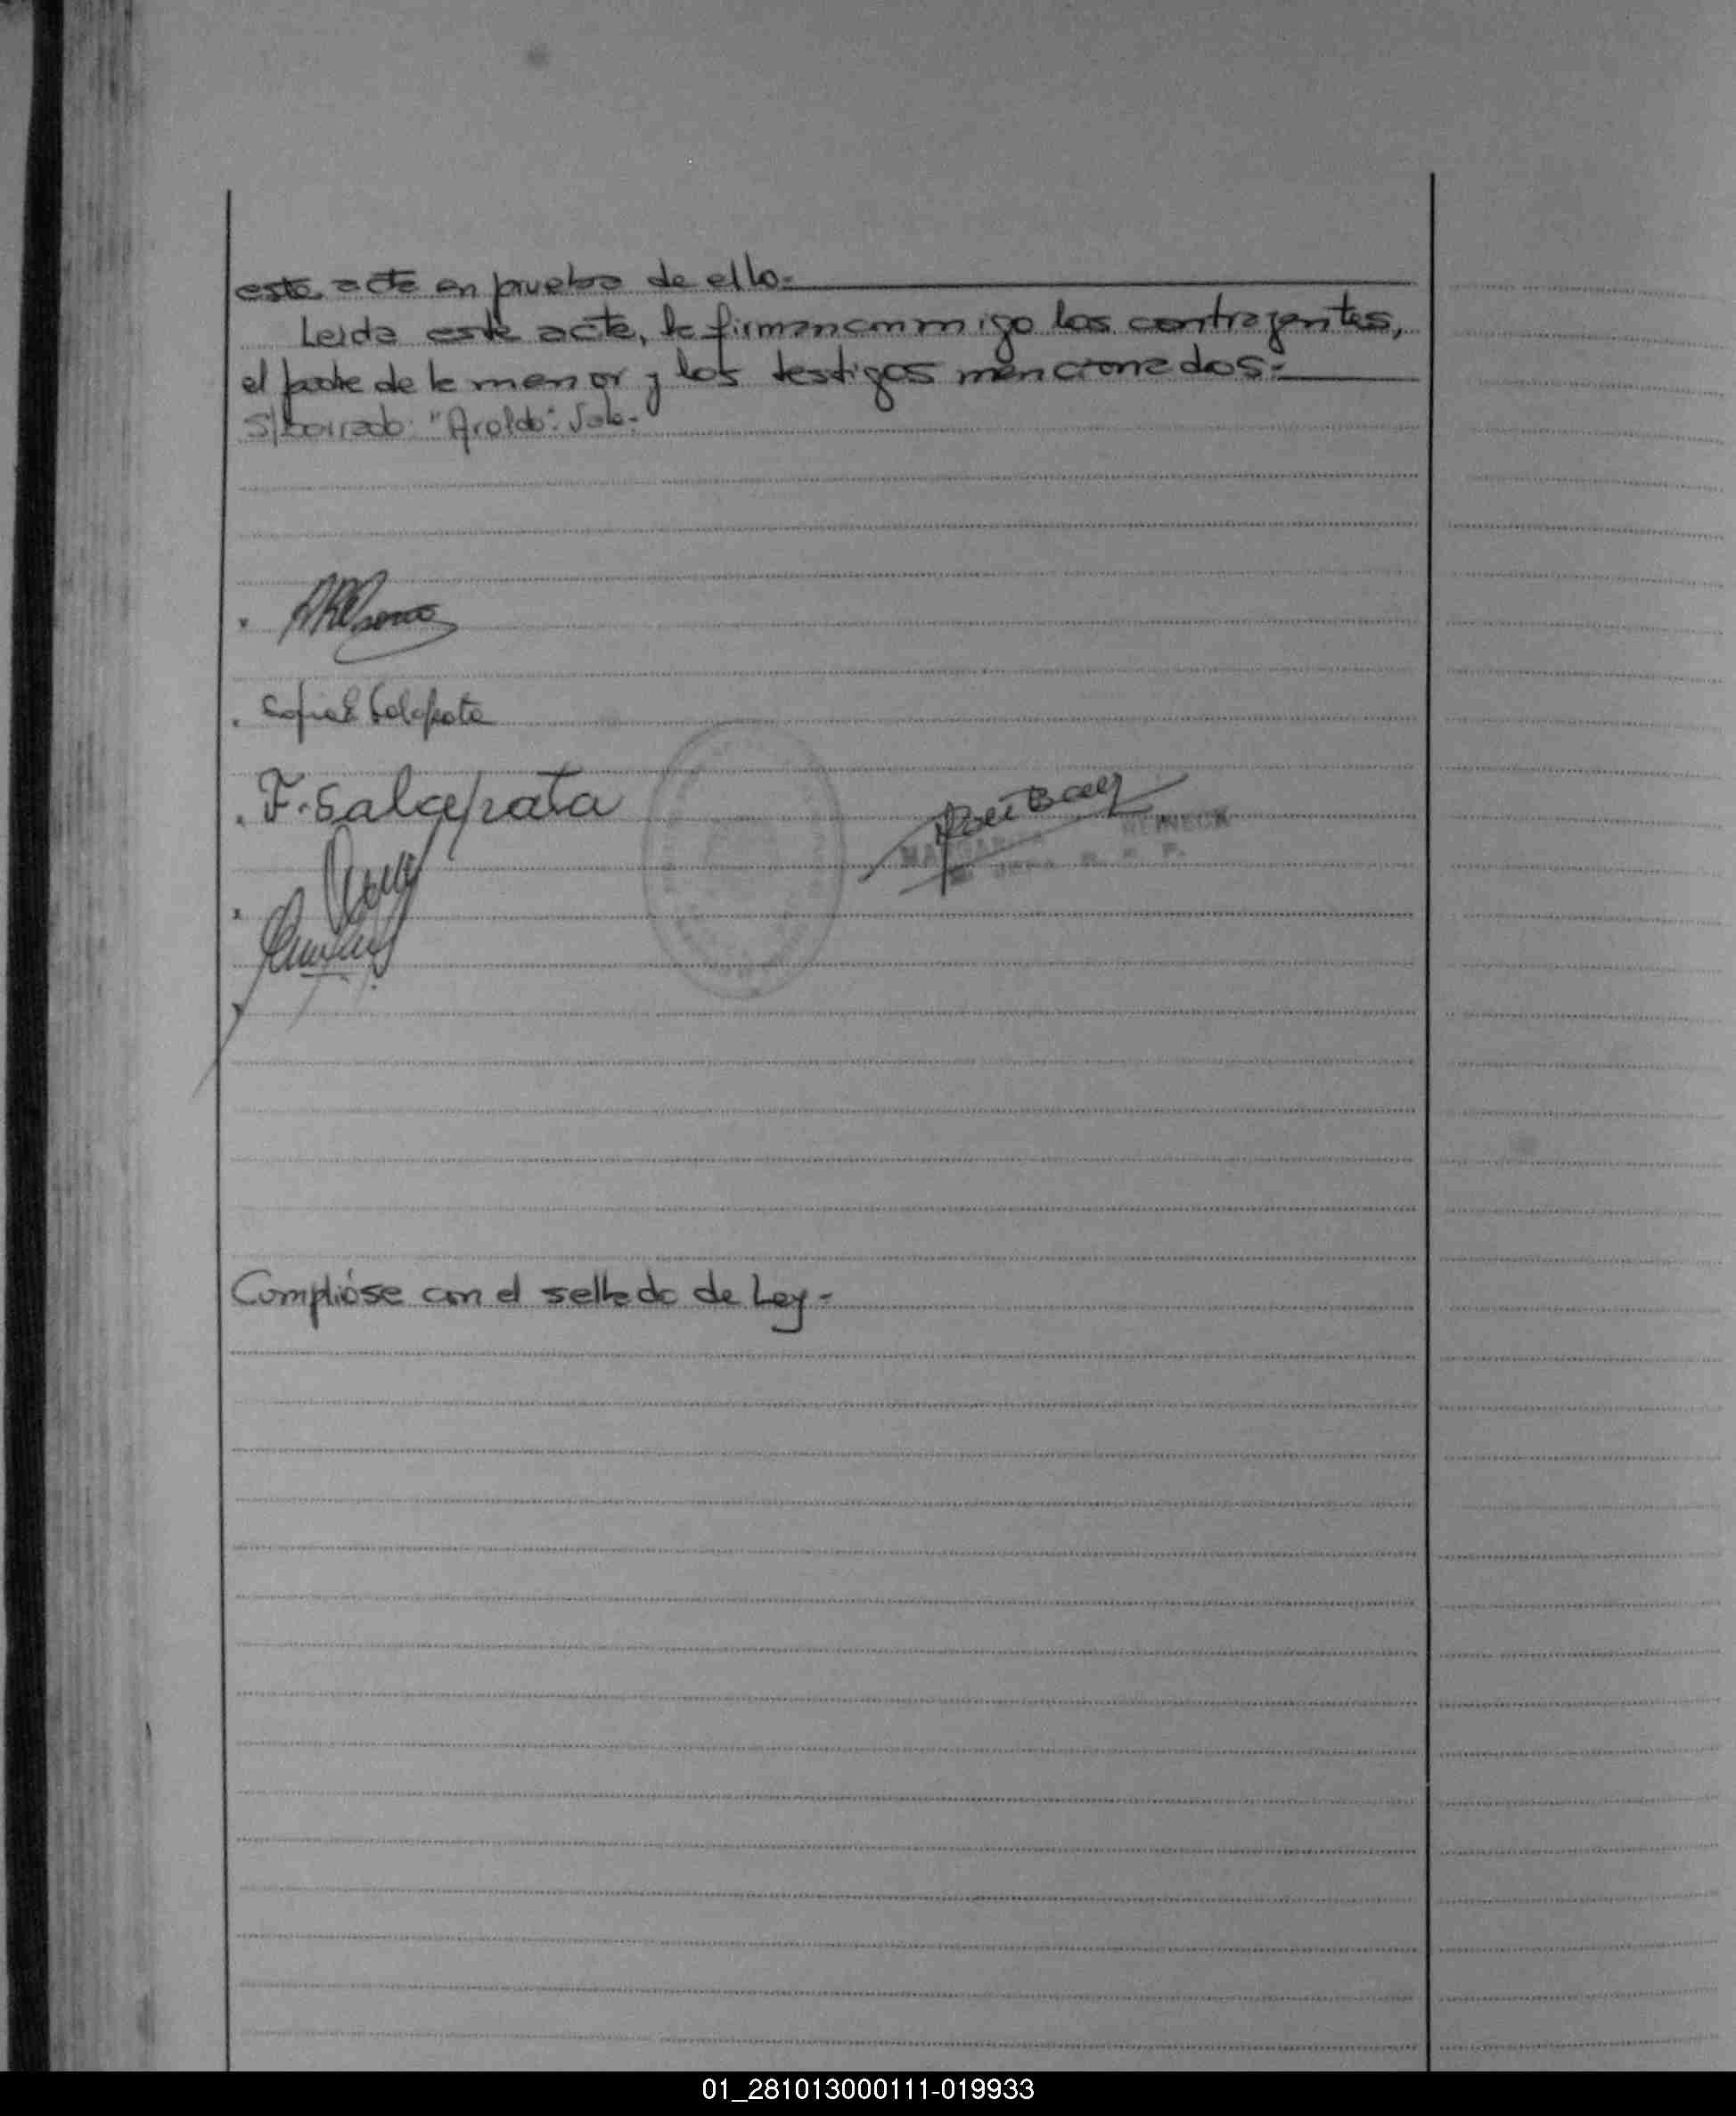 este acta en prueba de ello.-
Leida este acta, la firman conmigo los contrayentes,
el padre de la menor y los testigos mencionados.-
S/borrado: "Aroldo": Vale.-
Sofia E Salapata
F. Salapata
REINECK
Complióse con el sellado de Ley.-
01_281013000111-019933